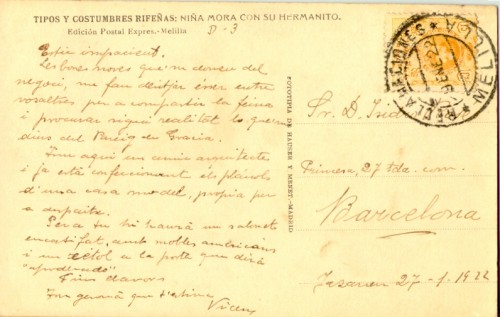 TIPOS Y COSTUMBRES RIFEÑAS: NIÑA MORA CON SU HERMANITO.
Edición Postal Expres.-Melilla
D-3
Estic impacient.
Les bones noves que'm doneu del
negoci, me fan desitjar ésser entre
vosaltres per a compartir la feina
i procurar sigui realitat lo que
dins del de Gracia.
aqui un arquitecte
i ja está confeccionant els planols
d'una casa model, propia per
a
Sera tu hi haurà un saló
encatifat, amb mobles americans
i un rétol a la porta que dirà
Fins
germá que t'estima
Vicens
FOTOTIPIA DE HAUSER Y MENET.-MADRID
MELILLA
Sr. D. Isidre
Princesa, 27 tda. com.
Barcelona
27-1-1922